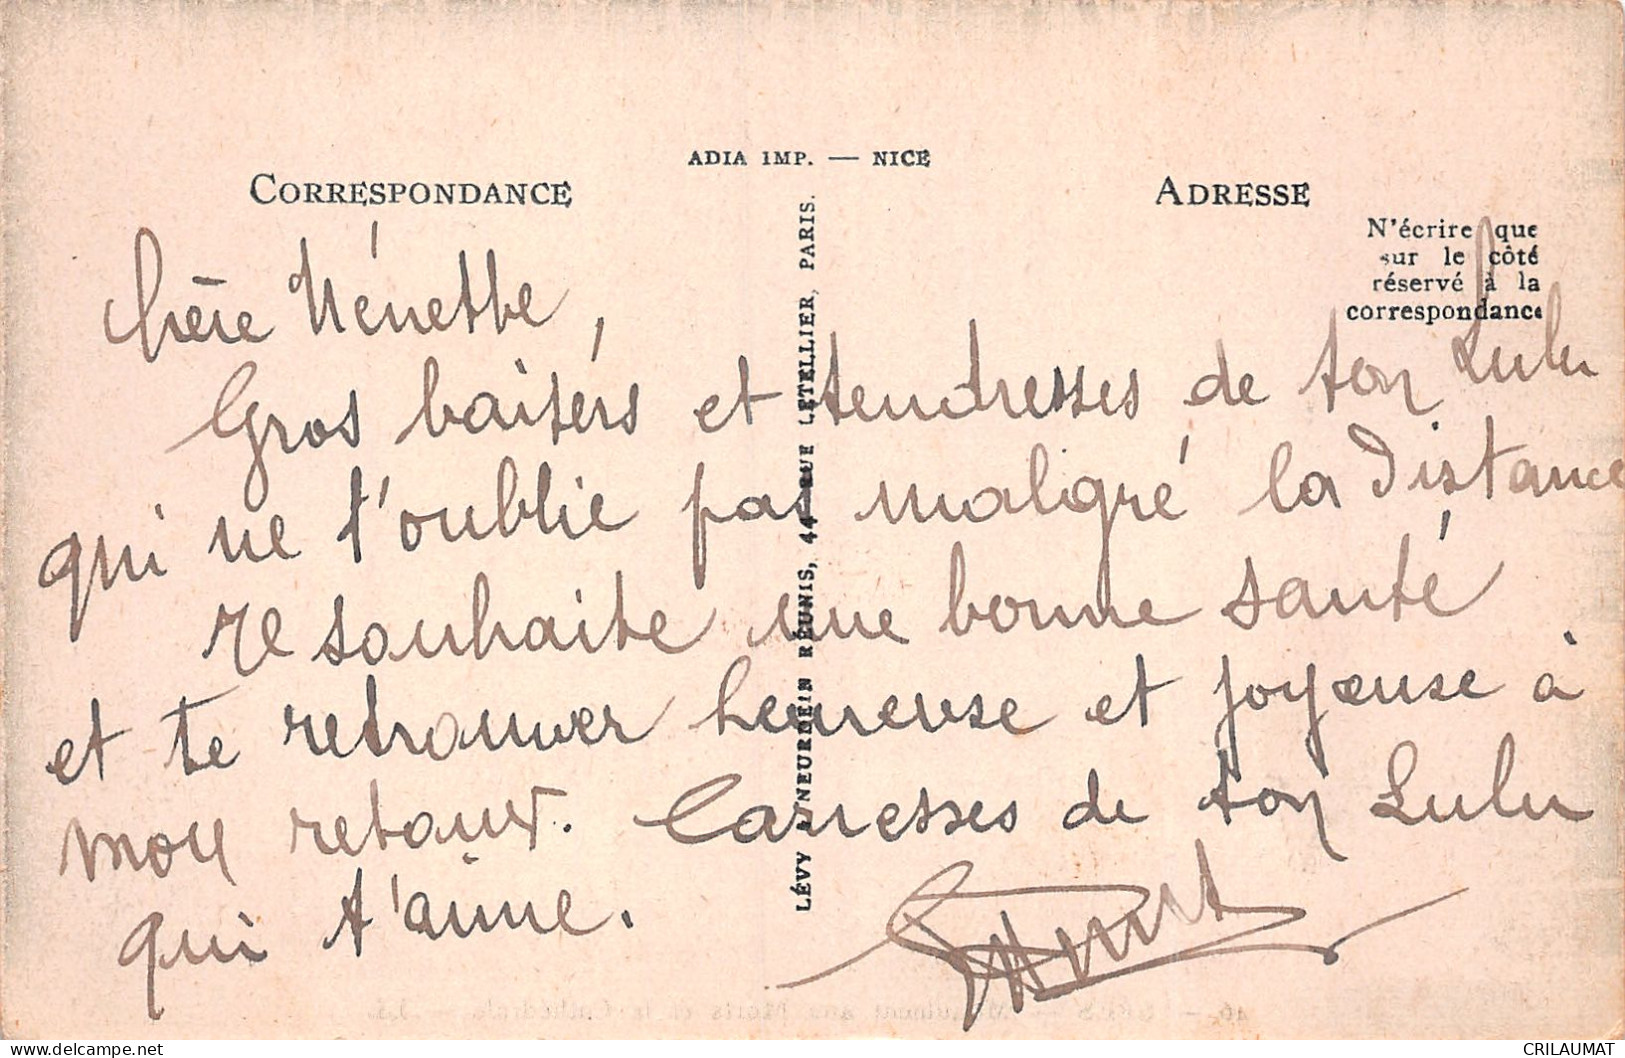 ADIA IMP. — NICE
CORRESPONDANCE
ADRESSE
N'écrire que
sur le côté
réservé à la
correspondance
LÉVY & NEURDEIN RÉUNIS, 44 RUE LETELLIER, PARIS.
Chère Nénette,
Gros baisers et tendresses de ton Lulu
qui ne t'oublie pas malgré la distance
Te souhaite une bonne santé
et te retrouver heureuse et joyeuse à
mon retour. Caresses de ton Lulu
qui t'aime.
CRILAUMAT